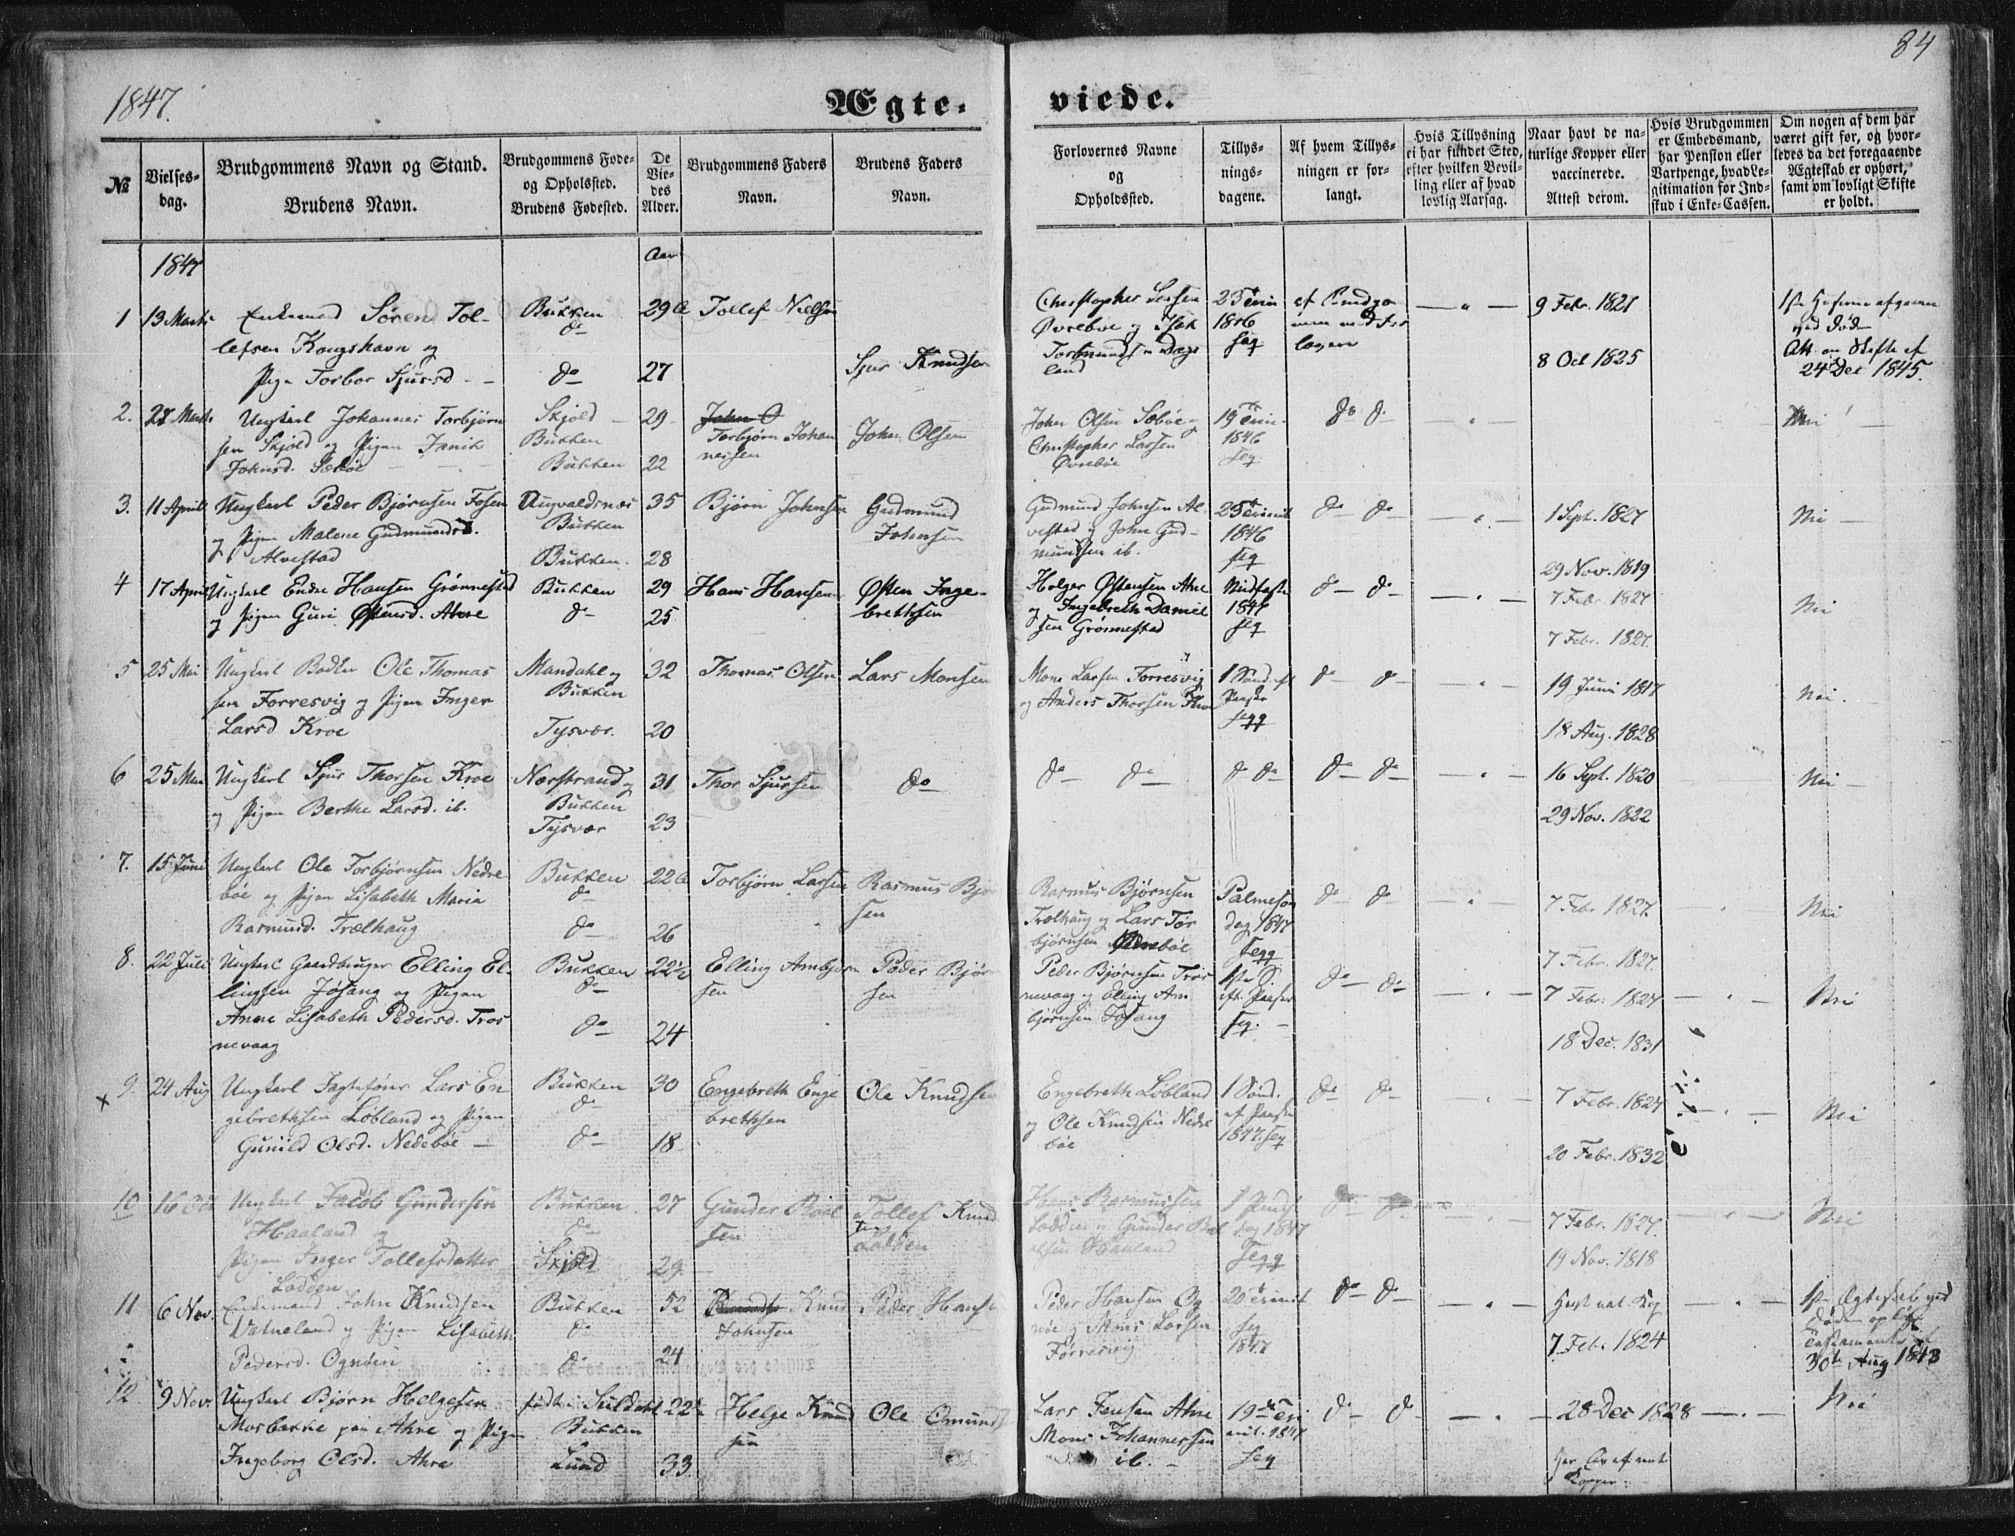 84
1847.
Ægte- viede.
№
Vielses-
dag.
Brudgommens Navn og Stand.
Brudens Navn.
Brudgommens Føde-
og Opholsted.
Brudens Fødested.
De
Vie-
des
Alder.
Brudgommens Faders
Navn.
Brudens Faders
Navn.
Forlovernes Navne
og
Opholdssted.
Tillys-
nings-
dagene.
Af hvem Tillys-
ningen er for-
langt.
Hvis Tillysning
ei har fundet Sted,
efter hvilken Bevil-
ling eller af hvad
lovlig Aarsag.
Naar havt de na-
turlige Kopper eller
vaccinerede.
Attest derom.
Hvis Brudgommen
er Embedsmand,
har Pension eller
Vartpenge, hvad Le-
gitimation for Ind-
skud i Enke-Cassen.
Om nogen af dem har
været gift før, og hvor-
ledes da det foregaaende
Ægteskab er ophørt,
samt om lovligt Skifte
er holdt.
1847
Aar
1 13 Marts Enkemand Søren Tol-
lefsen Kongshavn og
Pige Torbor Sjursd - -
Bukken
do
do
29
27
Tollef Nielsen
Sjur Knudsen
Christopher Larsen
Øvrebøe og Isak
Tormundsen Dags
land
1846
9 Febr. 1821
8 Oct 1825
24 Dec 1845.
2. 27 Marts Ungkarl Johannes Torbjørn
sen Skjold og Pigen
Johnsd. Sæbøe
Skjold
Bukken
Bukken
29
22
Torbjørn Johan
nesen
John Olsen
John Olsen Sæbøe
Christopher Larsen
Øvrebøe
1846
do do
Nei
3. 11 April Ungkarl Peder Bjørnsen Fosen
og Pigen Malene Gudmundsd.
Alvestad
Augvaldsnes
Bukken
Bukken.
35
28
Bjørn Johnsen
Gudmund
Johnsen
Gudmund Johnsen Al
vestad og John Gud-
mundsen ib.
1846
do do
1 Sept. 1827
29 Nov. 1819
Nei
4 17 April Ungkarl Endre Hansen Grønnestad
og Pigen Guri Østensd. Ahre
Bukken
do
29
25
Hans Hansen
Østen Inge-
brethsen
Holger Østensen Ahre
og Ingebreth Daniel
sen Grønnestad
Midfaste
1847
do do
7 Febr. 1827
7 Febr. 1827.
Nei
5 25 Mai Ungkarl Bødker Ole Thomas
sen Førresvig og Pigen Inger
Larsd Kroe
Mandahl og
Bukken
Tysvær.
32
20
Thomas Olsen
Lars Monsen
Mons Larsen Førresvig
og Anders Thorsen Kroe
1 Sønd. eft
Paaske
do do
19 Juni 1817
18 Aug. 1828
Nei.
6 25 Mai Ungkarl Sjur Thorsen Kroe
og Pigen Berthe Larsd. ib.
Nærstrand og
Bukken
Tysvær
31
23
Thor Sjursen
do
do do
do do
do do
16 Sept. 1820
29 Nov. 1822
Nei
7. 15 Juni Ungkarl Ole Torbjørnsen Nedre
bøe og Pigen Lisabeth Maria
Rasmusd. Trælhaug
Bukken
do
do
26
Torbjørn Larsen
Rasmus Bjør
sen
Rasmus Bjørnsen
Trælhaug og Lars Tor
bjørnsen
Palmesøn
dag 1847
do do
7 Febr. 1827.
7 Febr. 1827.
Nei
8. 22 Juli Ungkarl Gaardbruger Elling El-
lingsen Jøsang og Pigen
Anne Lisabeth Pedersd. Tros
nevaag
Bukken
do
do
22½
24
Elling Ambjørn
sen
Peder Bjør
sen
Peder Bjørnsen Tros
nevaag og Elling Am
bjørnsen Jøsang
do do
7 Febr. 1827
18 Dec. 1831
Nei
9. 24 Aug Ungkarl Jagtefører Lars En
gebrethsen Løbland og Pigen
Gunild Olsd. Nedebøe
Bukken
do
do
30
18
Engebreth Enge
brethsen
Ole Knudsen
Engebreth Løbland
og Ole Knudsen Nedre
bøe
1 Sønd.
ef Paaske
1847.
do do
7 Febr. 1827
20 Febr. 1832
Nei
10 16 Oct Ungkarl Jacob Gundersen
Haaland og
Pigen Inger Tollefsdatter
Lodden
Bukken.
do
Skjold
27
29
Gunder
sen
Tollef Knud
sen
Lodden
Hans Rasmussen
Lodden og Gunder
Haaland
7 Febr. 1827.
19 Nov. 1818
Nei
11 6 Nov. Enkemand John Knudsen
Vatneland og Pigen Lisabeth
Pedersd. Ognøen
Bukken
do
do
52
24
Knud
Johnsen
Peder Hansen
Peder Hansen Og
nøe og Mons Larsen
Førresvig
1847
do do
7 Febr. 1824
30te Aug 1843
12 9 Nov. Ungkarl Bjørn Helgesen
Mosbække paa Ahre og Pigen
Ingeborg Olsd. Ahre
født i Suldahl
Bukken
Lund
22½
33.
Helge Knud
sen
Ole Omund
Lars Jensen Ahre
Mons Johannessen
ib.
1847
do do
28 Dec 1828
Nei